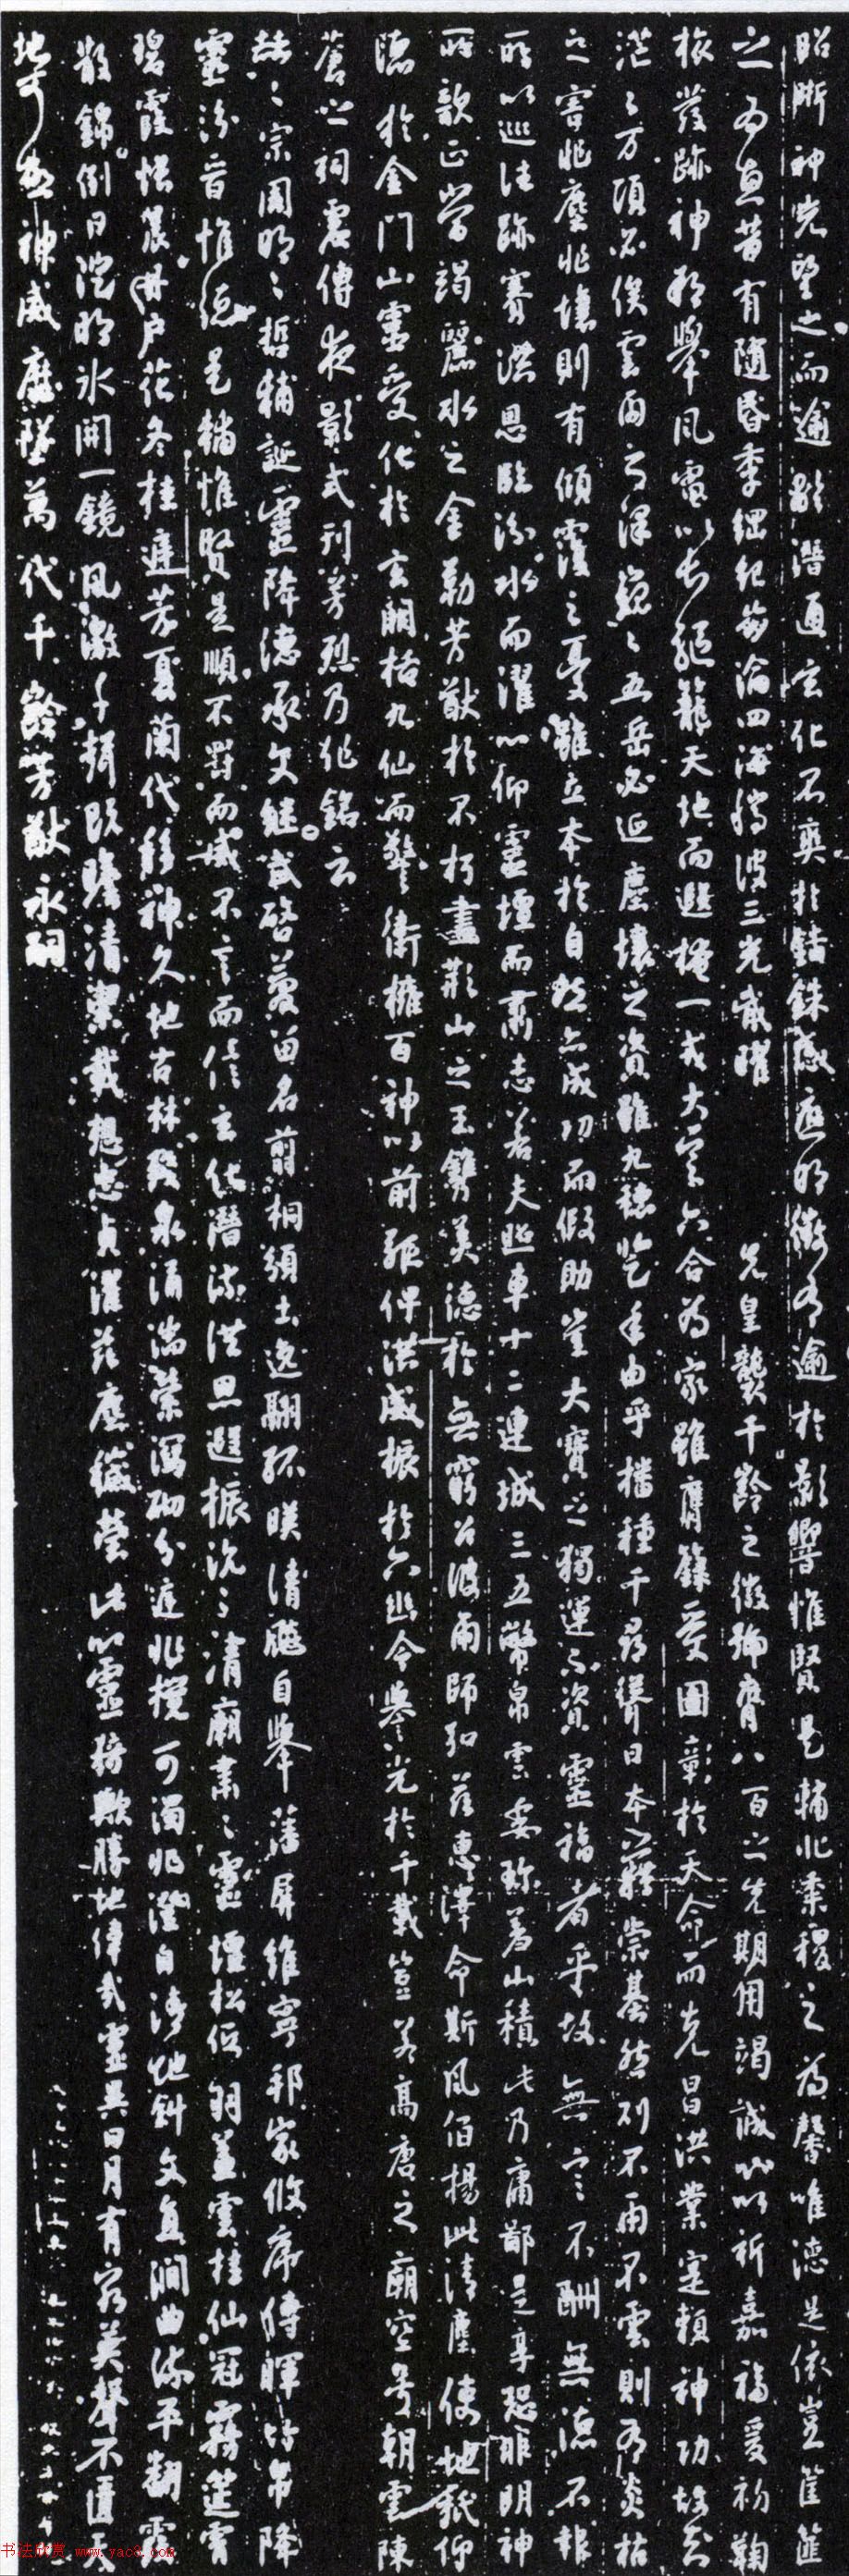 照晰神光望之而逾顯潛通玄化不爽於錙銖感應明徵有逾於影響惟賢是輔非黍稷之為馨唯德是依豈筐篚
之為惠昔有隨昏季綱紀崩淪四海騰波三光戢曜 先皇襲千齡之徽號膺八百之先期用竭誠心以祈嘉福爰初鞠
旅發跡神邦舉風電以長驅籠天地而遐掩一戎大定六合為家雖膺籙受圖彰於天命而克昌洪業寔賴神功故知
茫茫万頃必俟雲雨之澤巍巍五岳必延塵壤之資雖九穗登年由乎播種千尋聳日本藉崇基然則不雨不雲則有炎枯
之害非塵非壤則有傾覆之憂雖立本於自然亦成功而假助豈大寶之獨運不資靈福者乎故無言不酬無德不報
所以巡往跡賽洪恩臨汾水而濯心仰靈壇而肅志若夫照車十二連城三五幣帛雲委珍羞山積此乃庸鄙是享恐非明神
所歆正當竭麗水之金勒芳猷於不朽盡荊山之玉鐫美德於無窮召彼雨師弘茲惠澤命斯風伯揚此清塵使地祇仰
德於金門山靈受化於玄闕括九仙而警衛擁百神以前驅俾洪威振於六幽令譽光於千載豈若高唐之廟空号朝雲陳
蒼之祠虛傳夜影式刊芳烈乃作銘云
赫赫宗周明明哲輔誕靈降德承文繼武啓慶留名翦桐頒土逸翮孤映清飈自舉藩屏維寧邦家攸序傳暉竹帛降
靈汾晉惟德是輔惟賢是順不罰而威不言而信玄化潛流洪恩遐振沉沉清廟肅肅靈壇松低羽蓋雲挂仙冠霧筵霄
碧霞帳晨丹戶花冬桂庭芳夏蘭代移神久地古林殘泉涌湍縈瀉砌分庭非攪可濁非澄自清地斜文直澗曲流平翻霞
散錦倒日澄明冰開一鏡風激千聲既瞻清潔載想忠貞濯茲塵穢瑩此心靈猗歟勝地偉哉靈異日月有窮英聲不匱天
地可極神威靡墜萬代千齡芳猷永嗣
书法欣赏 www.yac8.com